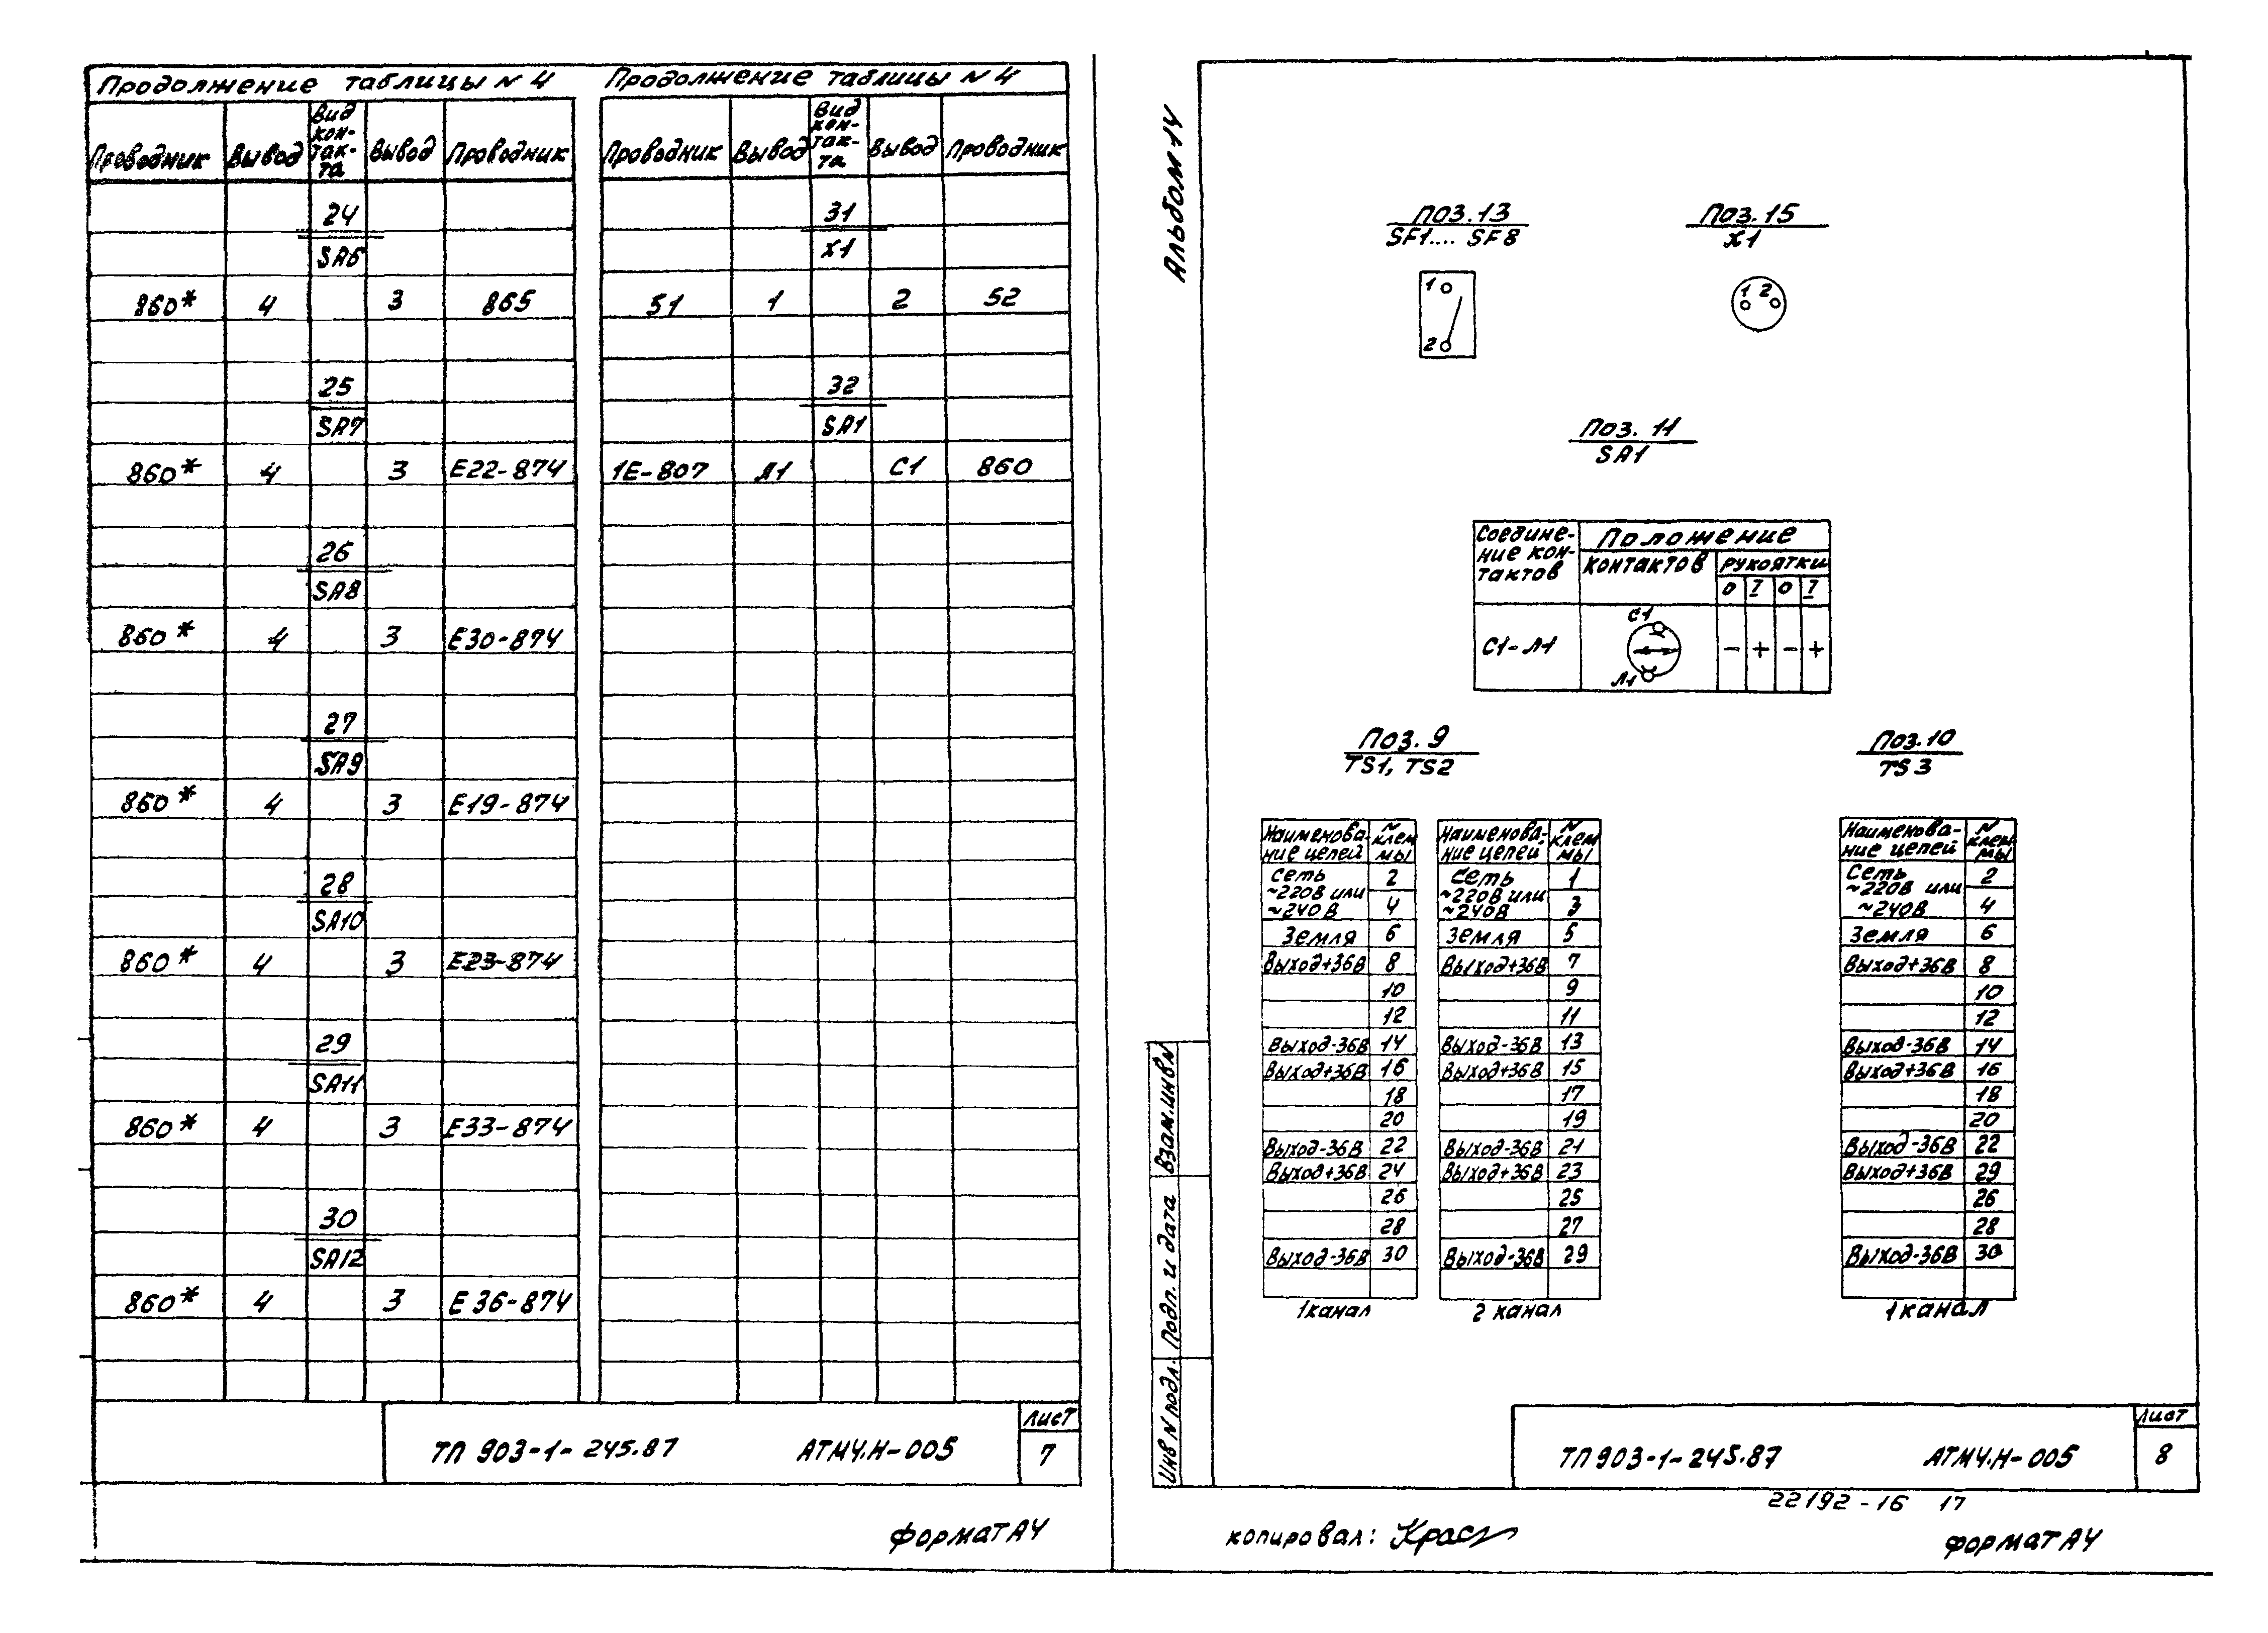 Продолжение таблицы N 4
Проводник Вывод Вид кон-так-та Вывод Проводник
24
SA6
860* 4 3 865
25
SA7
860* 4 3 E22-874
26
SA8
860* 4 3 E30-874
27
SA9
860* 4 3 E19-874
28
SA10
860* 4 3 E23-874
29
SA11
860* 4 3 E33-874
30
SA12
860* 4 3 E36-874
Продолжение таблицы N 4
Проводник Вывод Вид кон-так-та Вывод Проводник
31
X1
51 1 2 52
32
SA1
1E-807 Л1 C1 860
ТП 903-1-245.87 АТМ4.Н-005
Лист
7
Формат А4
Альбом 14
Поз.13
SF1.... SF8
1
2
Поз.15
X1
1 2
Поз. 11
SA1
Соедине-
ние кон-
тактов
Положение
контактов рукоятки
0 I 0 I
C1-Л1
C1
Л1
- + - +
Поз. 9
TS1, TS2
Наименова-
ние цепей
N
клем
мы
Сеть 2
~220В или
~240В 4
Земля 6
Выход+36В 8
10
12
Выход-36В 14
Выход+36В 16
18
20
Выход-36В 22
Выход+36В 24
26
28
Выход-36В 30
1 канал
Наименова-
ние цепей
N
клем
мы
Сеть 1
~220В или
~240В 3
Земля 5
Выход+36В 7
9
11
Выход-36В 13
Выход+36В 15
17
19
Выход-36В 21
Выход+36В 23
25
27
Выход-36В 29
2 канал
Поз.10
TS3
Наименова-
ние цепей
N
клем
мы
Сеть 2
~220В или
~240В 4
Земля 6
Выход+36В 8
10
12
Выход-36В 14
Выход+36В 16
18
20
Выход-36В 22
Выход+36В 29
26
28
Выход-36В 30
1 канал
Взам.инв.N
Подп. и дата
Инв N подл.
ТП 903-1-245.87 АТМ4.Н-005
Лист
8
22192-16 17
копировал:
Формат А4